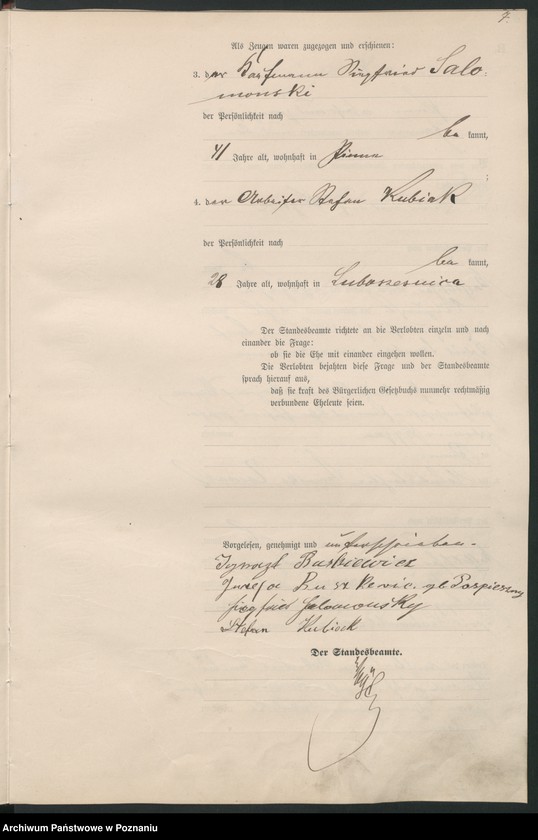 7.
Als Zeugen waren zugezogen und erschienen:
3. der Kaufmann Siegfried Salo-
monski
der Persönlichkeit nach
be kannt,
41 Jahre alt, wohnhaft in Pinne
4. der Arbeiter Stefan Kubiak
der Persönlichkeit nach
be kannt,
28 Jahre alt, wohnhaft in Lubosesnica
Der Standesbeamte richtete an die Verlobten einzeln und nach
einander die Frage:
ob sie die Ehe mit einander eingehen wollen.
Die Verlobten bejahten diese Frage und der Standesbeamte
sprach hierauf aus,
daß sie kraft des Bürgerlichen Gesetzbuchs nunmehr rechtmäßig
verbundene Eheleute seien.
Vorgelesen, genehmigt und unterschrieben
Baskiewicz
Salomonsky
Stefan Kubiak
Der Standesbeamte.
Archiwum Państwowe w Poznaniu